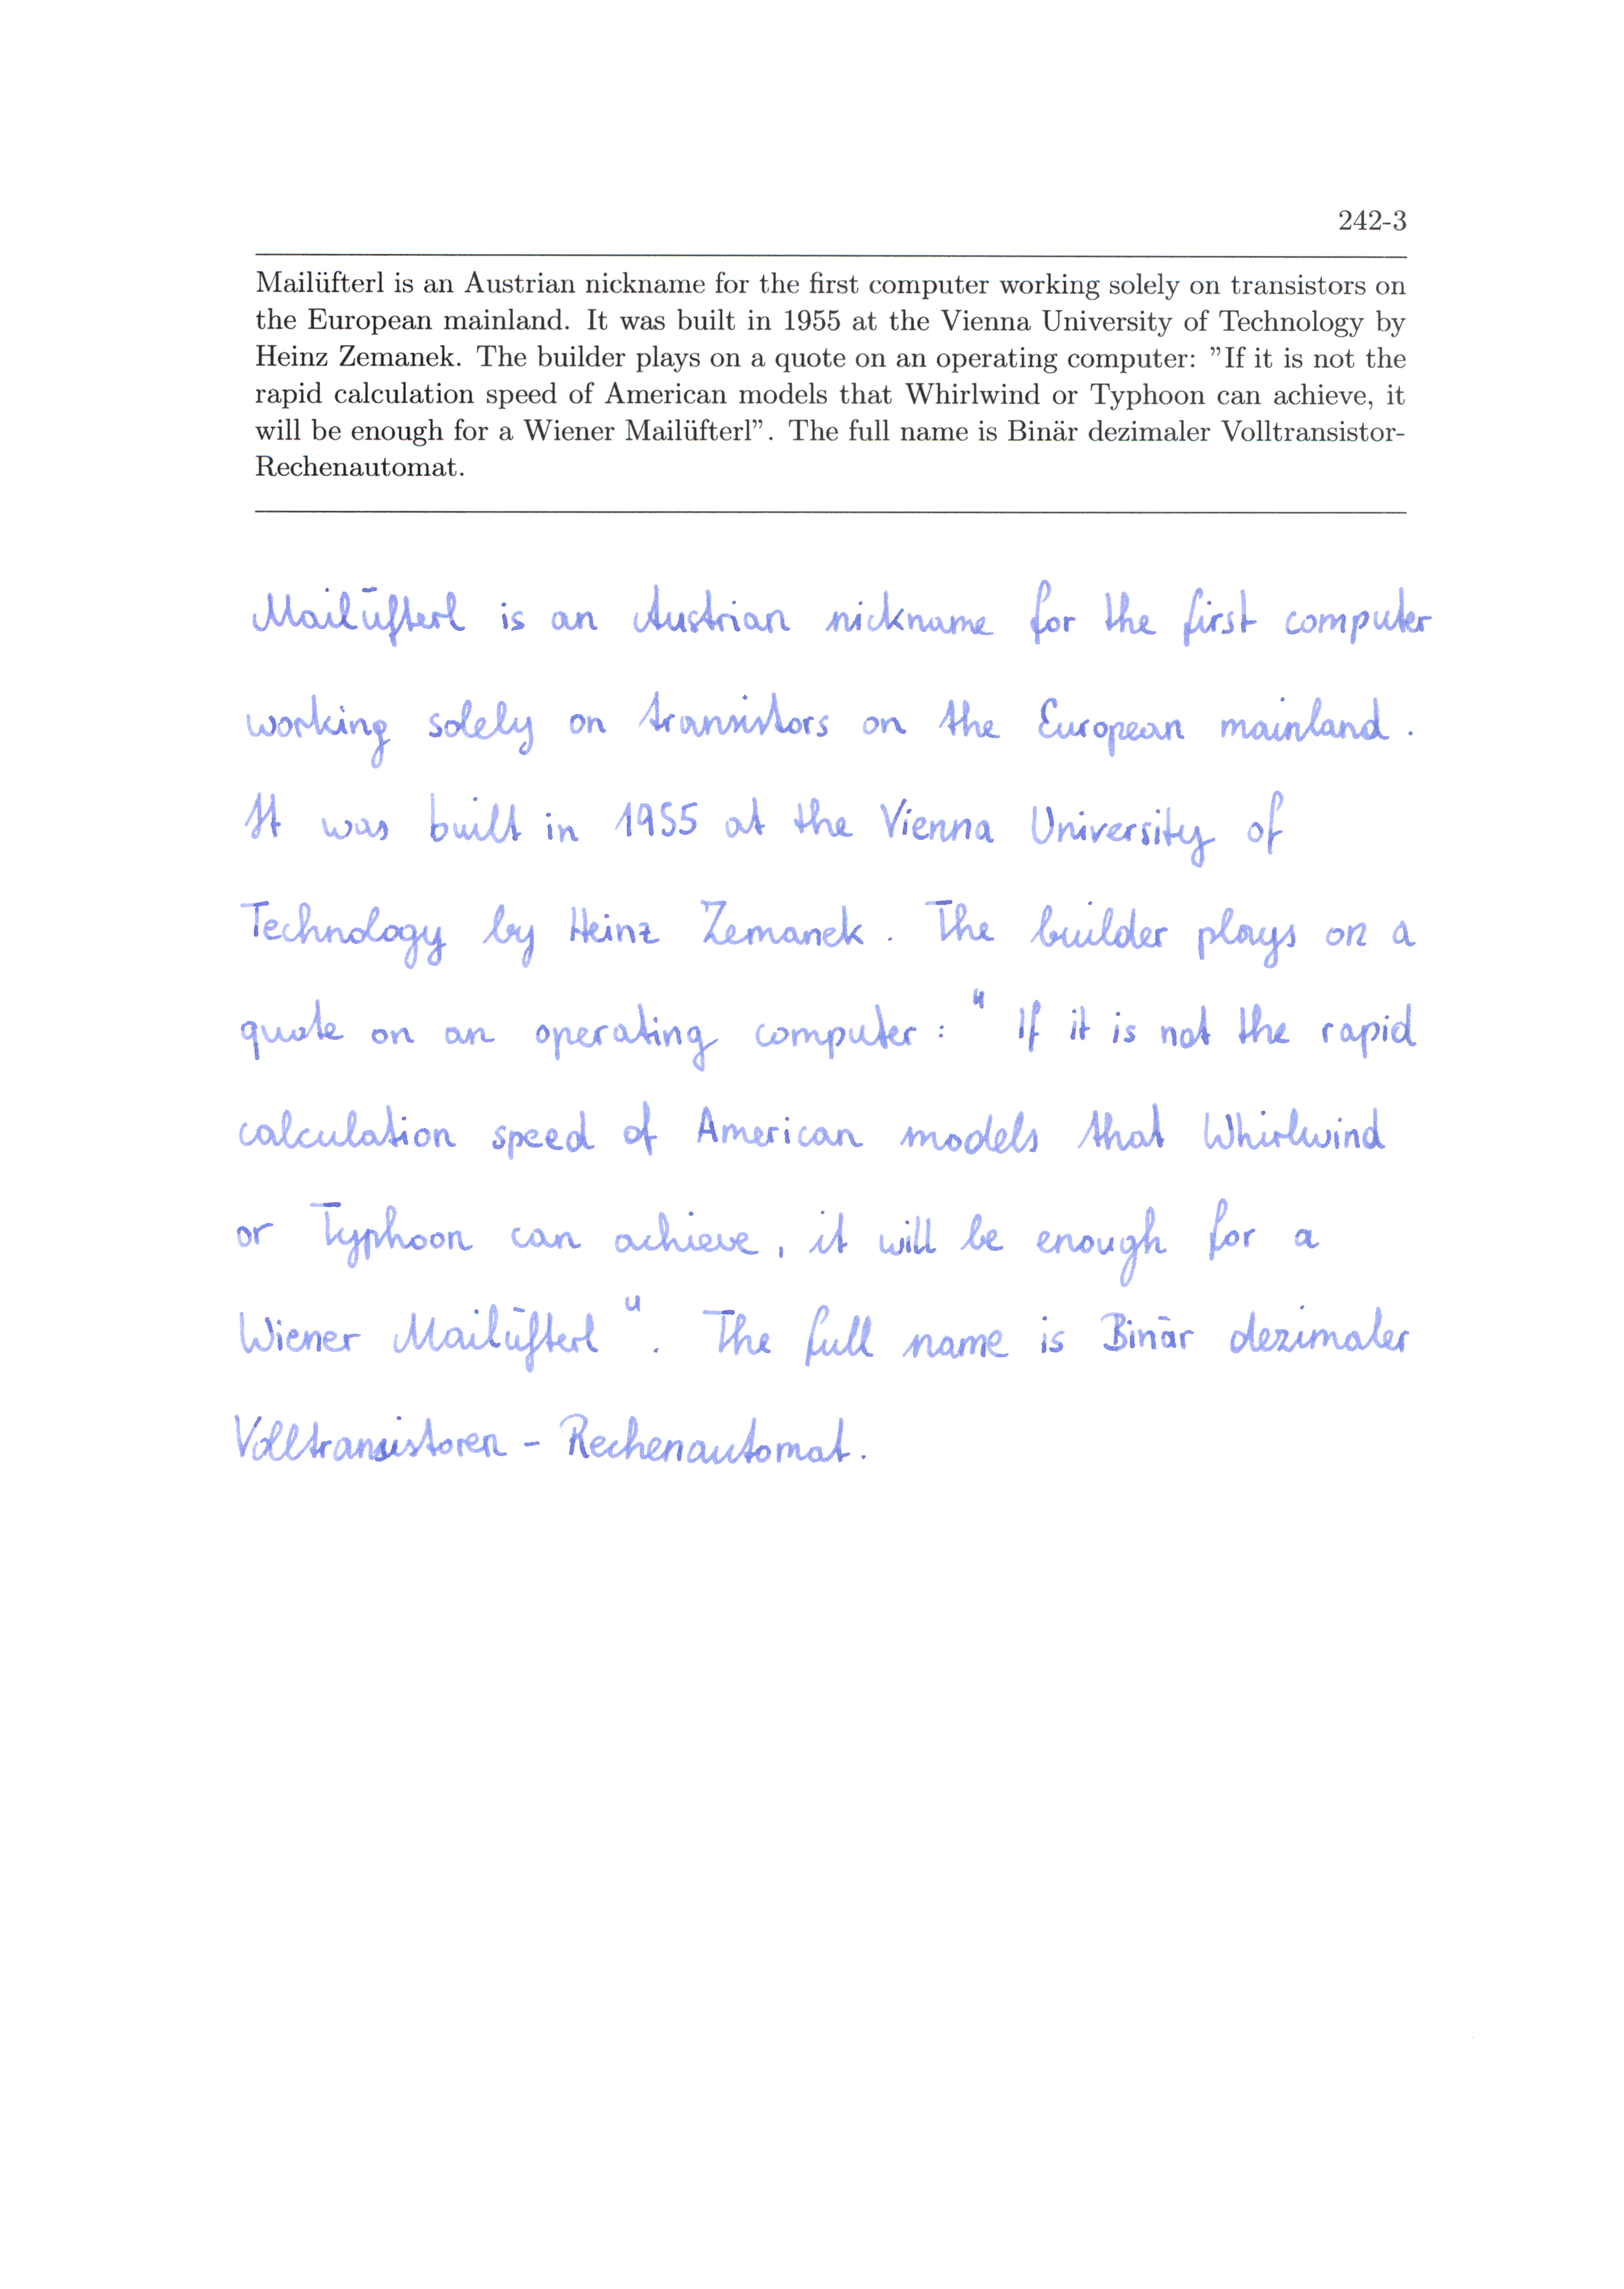 242-3
Mailüfterl is an Austrian nickname for the first computer working solely on transistors on
the European mainland. It was built in 1955 at the Vienna University of Technology by
Heinz Zemanek. The builder plays on a quote on an operating computer: ”If it is not the
rapid calculation speed of American models that Whirlwind or Typhoon can achieve, it
will be enough for a Wiener Mailüfterl”. The full name is Binär dezimaler Volltransistor-
Rechenautomat.
Mailüfterl is an Austrian nickname for the first computer
working solely on transistors on the European mainland.
It was built in 1955 at the Vienna University of
Technology by Heinz Zemanek. The builder plays on a
quote on an operating computer: "If it is not the rapid
calculation speed of American models that Whirlwind
or Typhoon can achieve, it will be enough for a
Wiener Mailüfterl". The full name is Binär dezimaler
Volltransistoren - Rechenautomat.